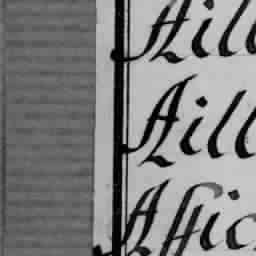 Aill
Aill
Affic